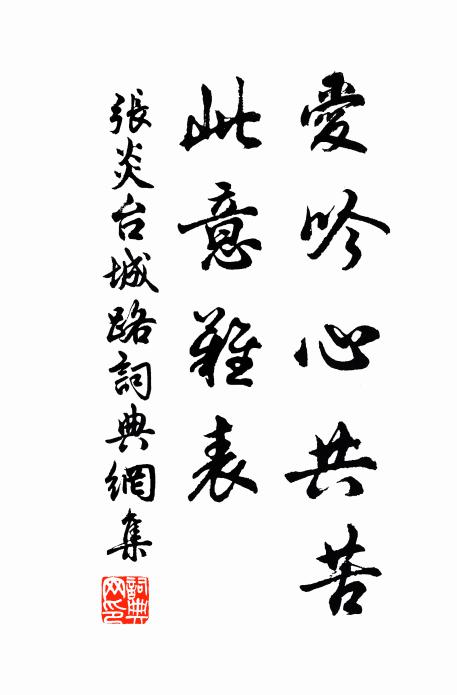 愛吟心共苦
此意難表
張炎台城路詞典網集
詞典網印